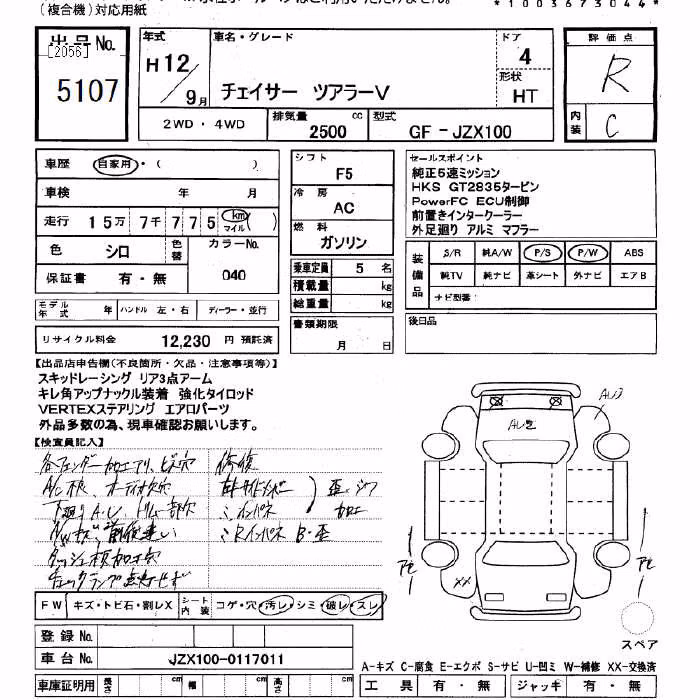 (複合機)対応用紙
*1003673044**
出品No.
[2056]
5107
年式
H12/9月
車名・グレード
チェイサー ツアラーV
ドア
4
形状
HT
評価点
R
内装
C
2WD・4WD
排気量
2500 cc
型式
GF-JZX100
車歴 自家用・( )
車検 年 月
走行 15万 7千 775 km マイル( )
色 シロ
色替
カラーNo.
040
保証書 有・無
モデル年式 年 ハンドル 左・右 ディーラー・並行
リサイクル料金 12,230 円 預託済
シフト
F5
冷房
AC
燃料
ガソリン
乗車定員 5 名
積載量 kg
総重量 kg
書類期限
月 日
セールスポイント
純正5速ミッション
HKS GT2835タービン
PowerFC ECU制御
前置きインタークーラー
外足廻り アルミ マフラー
装備品
S/R 純A/W P/S P/W ABS
純TV 純ナビ 革シート 外ナビ エアB
ナビ型番:
後日品
【出品店申告欄(不良箇所・欠品・注意事項等)】
スキッドレーシング リア3点アーム
キレ角アップナックル装着 強化タイロッド
VERTEXステアリング エアロパーツ
外品多数の為、現車確認お願いします。
【検査員記入】
各フェンダー加工アリ、ビス穴
修復
ダッシュ板加工穴
チェックランプ点灯せず
AU3
AU2
XX
FW キズ・トビ石・割レX
シート内装 コゲ・穴・汚レ・シミ・破レ・スレ
スペア
登録No.
車台No. JZX100-0117011
A-キズ C-腐食 E-エクボ S-サビ U-凹ミ W-補修 XX-交換済
車庫証明用 長さ cm 幅 cm 高さ cm
工具 有・無 ジャッキ 有・無